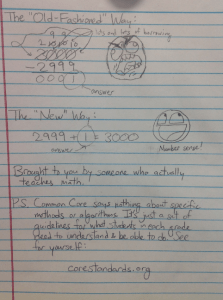 The "Old-Fashioned" Way:
It's not lots of borrowing
- 2999
0001
answer
The "New" Way:
2999 + 1 = 3000
answer
Number sense!
Brought to you by someone who actually
teaches math.
P.S. Common Core says nothing about specific
methods or algorithms. It's just a set of
guidelines for what students in each grade
need to understand & be able to do. See
for yourself:
corestandards.org